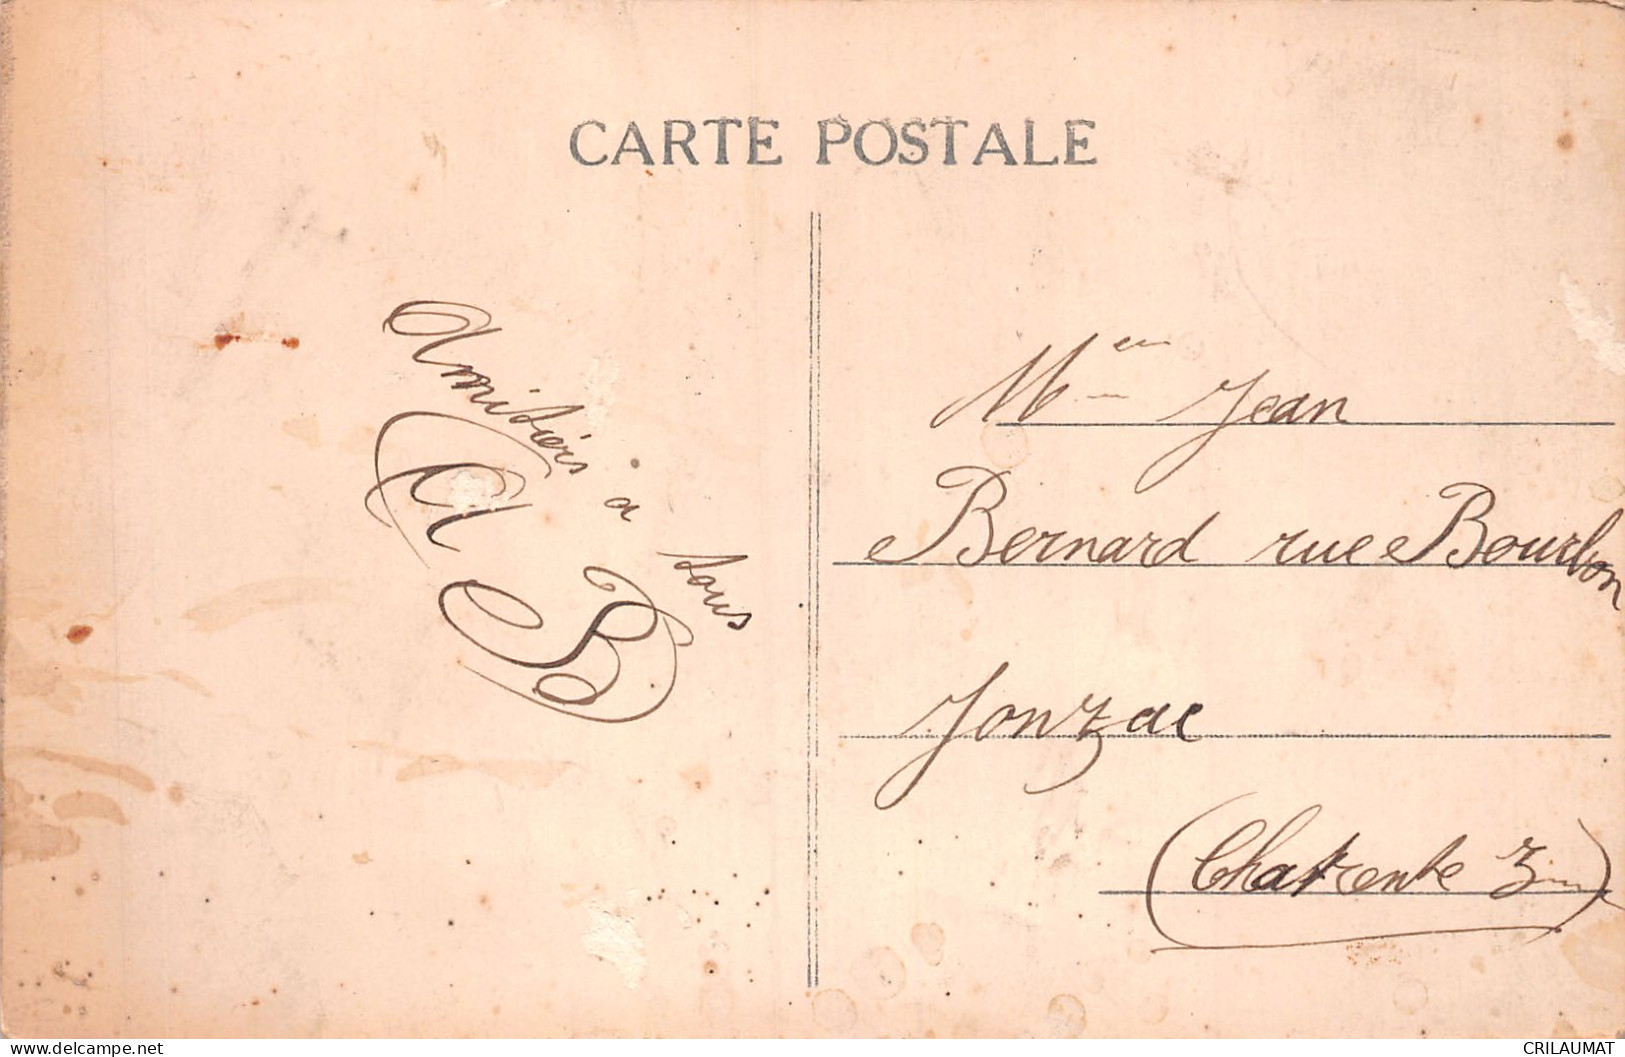 CARTE POSTALE
Amitiés à tous
AB
Mme Jean
Bernard rue Bourbon
Jonzac
(Charente Inf)
www.delcampe.net
CRILAUMAT